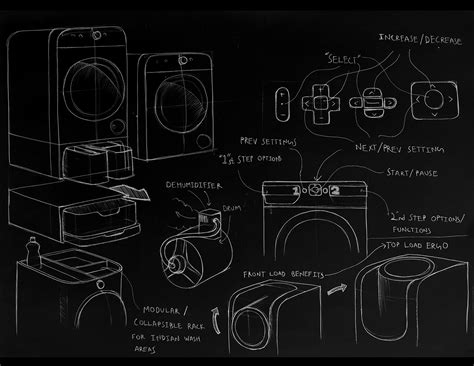 INCREASE/DECREASE
"SELECT"
NEXT/PREV SETTING
PREV SETTINGS
"1"st STEP OPTIONS
START/PAUSE
1
2
"2"nd STEP OPTIONS/
FUNCTIONS
DEHUMIDIFIER
DRUM
TOP LOAD ERGO
FRONT LOAD BENEFITS
MODULAR/
COLLAPSIBLE RACK
FOR INDIAN WASH
AREAS